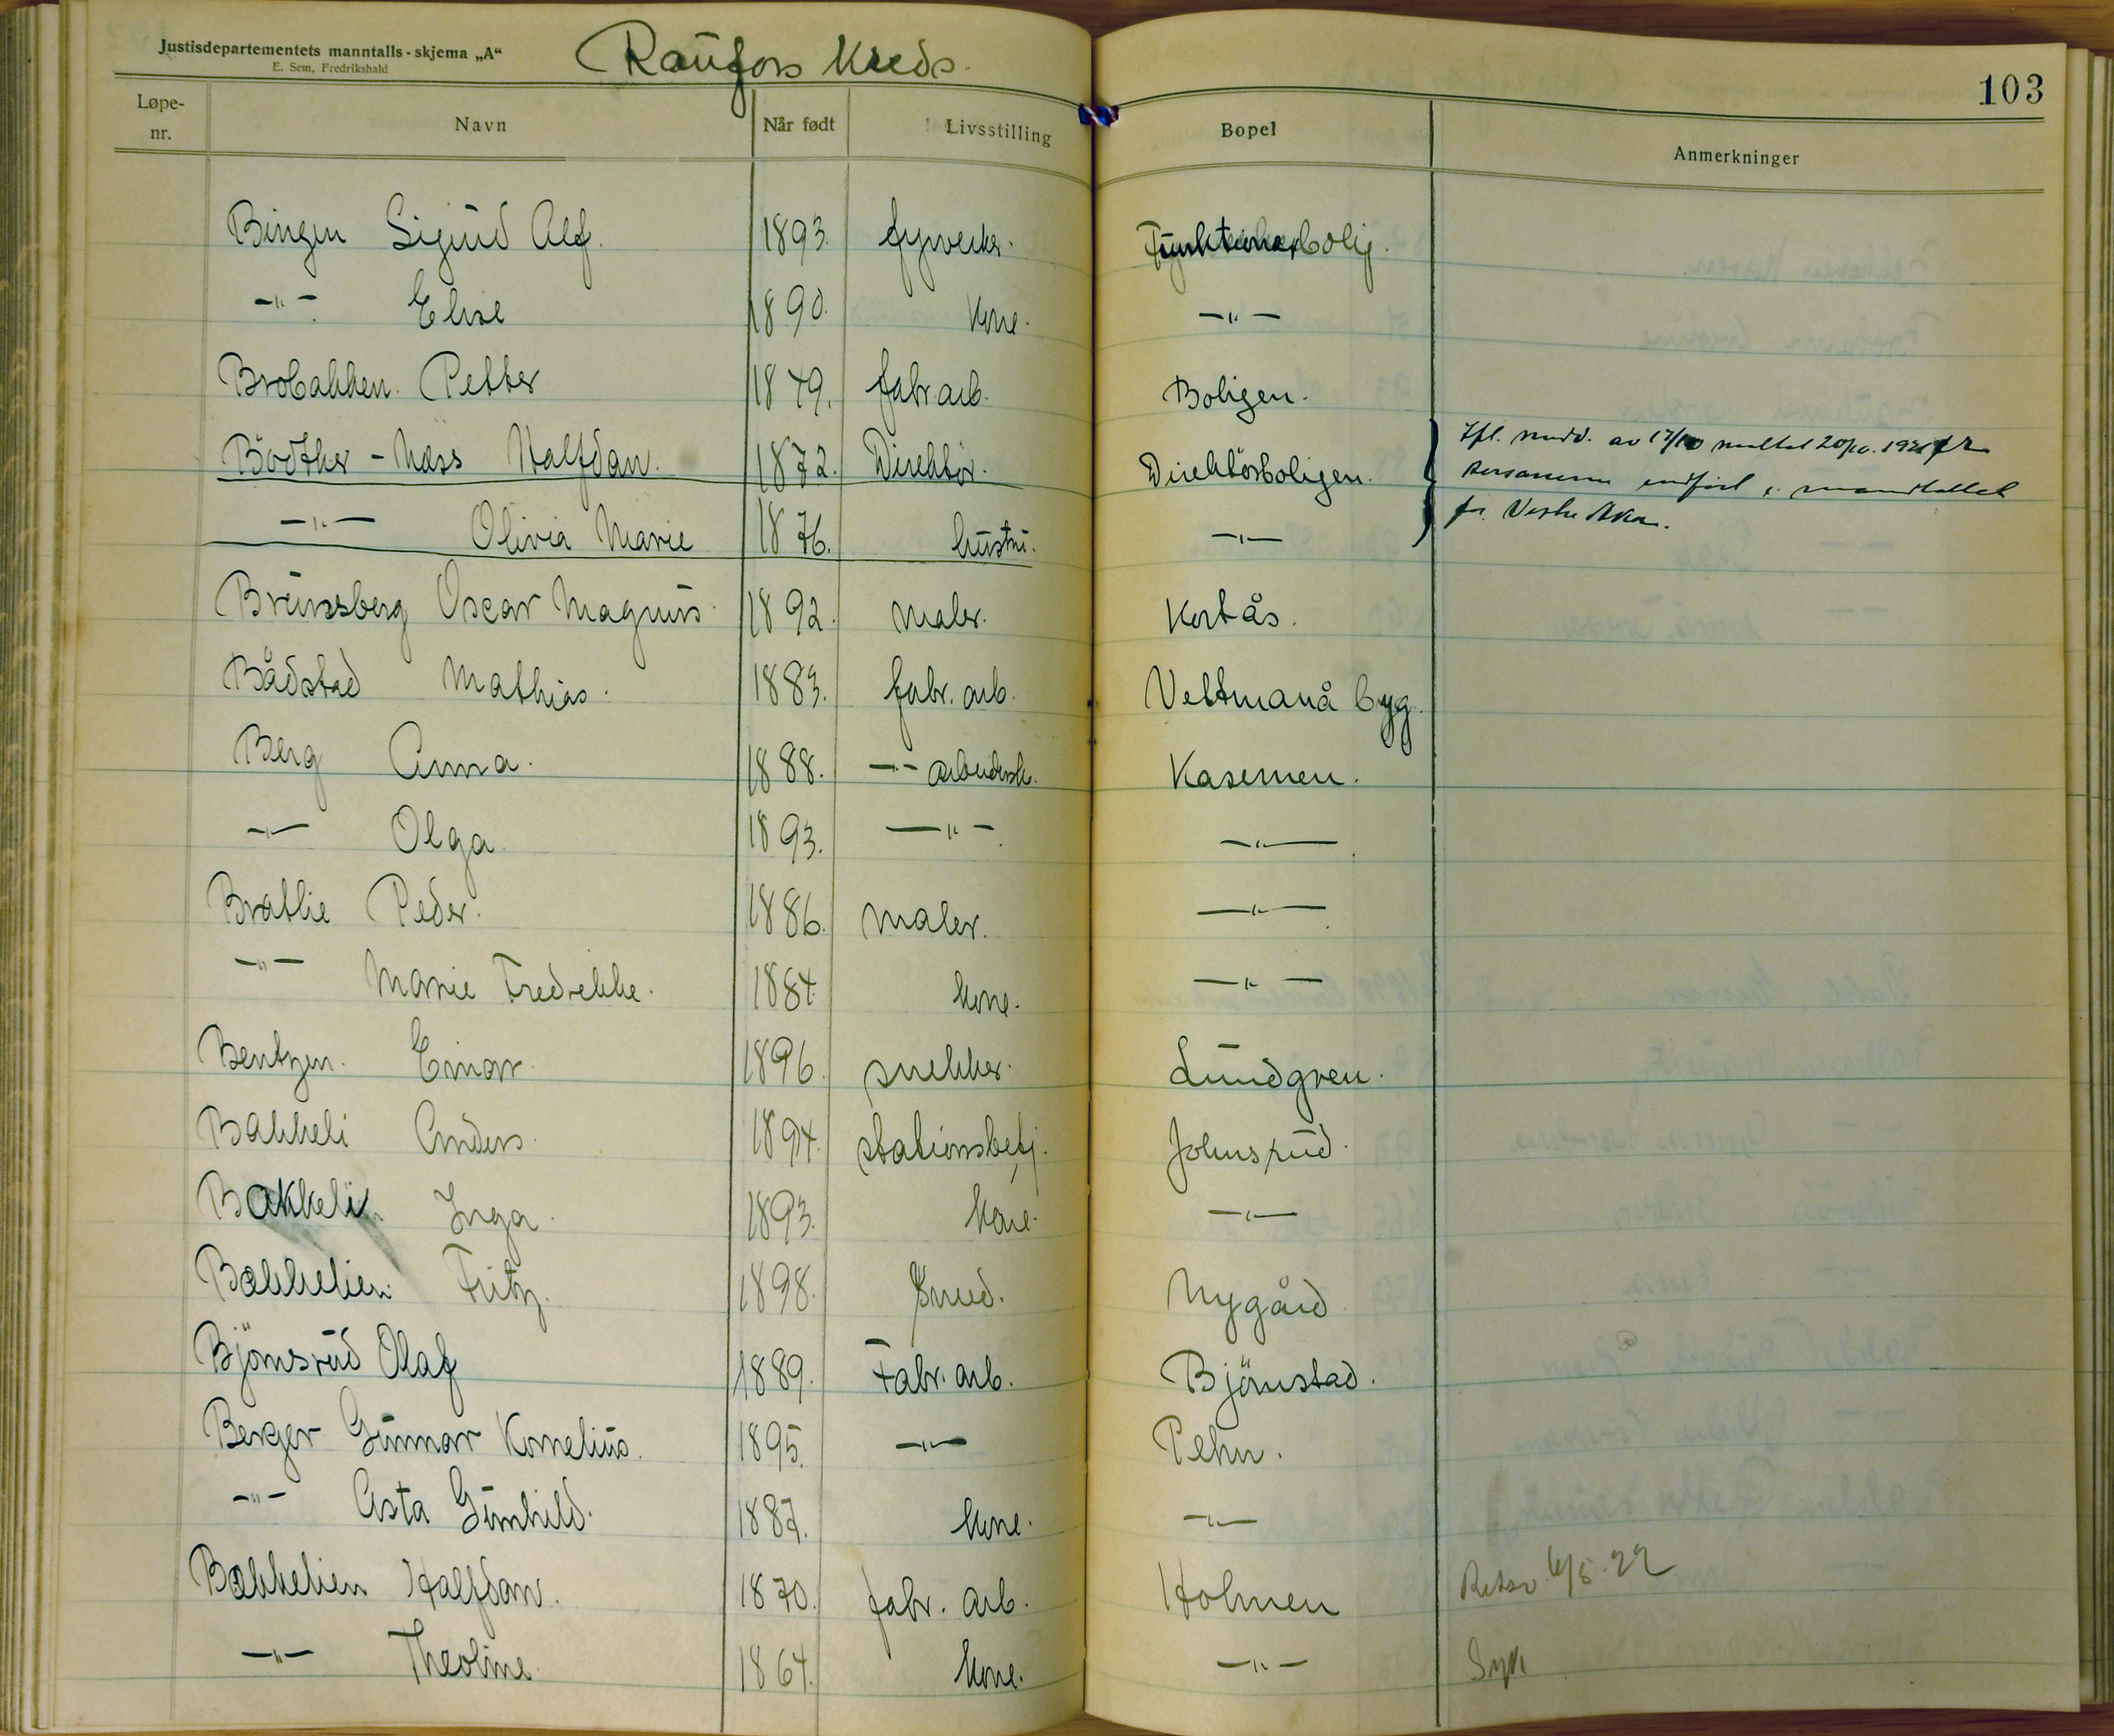 Justisdepartementets manntalls-skjema „A“
E. Sem, Fredrikshald
Raufoss Kreds.
103
Løpe-nr. Navn Når født Livsstilling Bopel Anmerkninger
Bingen Sigurd Alf. 1893. fyrverker. Funktionærbolig.
-"- Elise 1890. kone. -"-
Brobakken. Petter 1879. fabr.arb. Boligen.
Bödtker - Næss Halfdan. 1872. Direktör. Direktörboligen.
-"- Olivia Marie 1876. hustru. -"-
Ifl. medd. av 17/10 mottat 20/10. 1921 er
personerne indført i mandtallet
for Vestre Aker.
Brunsberg Oscar Magnus. 1892. maler. Kortås.
Bådstad Mathias. 1883. fabr. arb. Veltmanå byg.
Berg Anna. 1888. -"- arbeidersk. Kasernen.
-"- Olga. 1893. -"- -"-
Bratlie Peder. 1886. maler. -"-
-"- Marie Fredrikke. 1884. kone. -"-
Bentzen. Einar. 1896. snekker. Lundgren.
Bakkeli Anders. 1894. stationsbetj. Johnsrud.
Bakkeli. Inga. 1893. kone. -"-
Bakkelien. Fritz. 1898. Smed. Nygård
Björnsrud Olaf 1889. Fabr. arb. Björnstad.
Berger Gunnar Kornelius. 1895. -"- Pehn.
-"- Asta Gunhild. 1887. kone. -"-
Bakkelien Halfdan. 1870. fabr. arb. Holmen 6/5.22
-"- Theoline. 1864. kone. -"- Syk